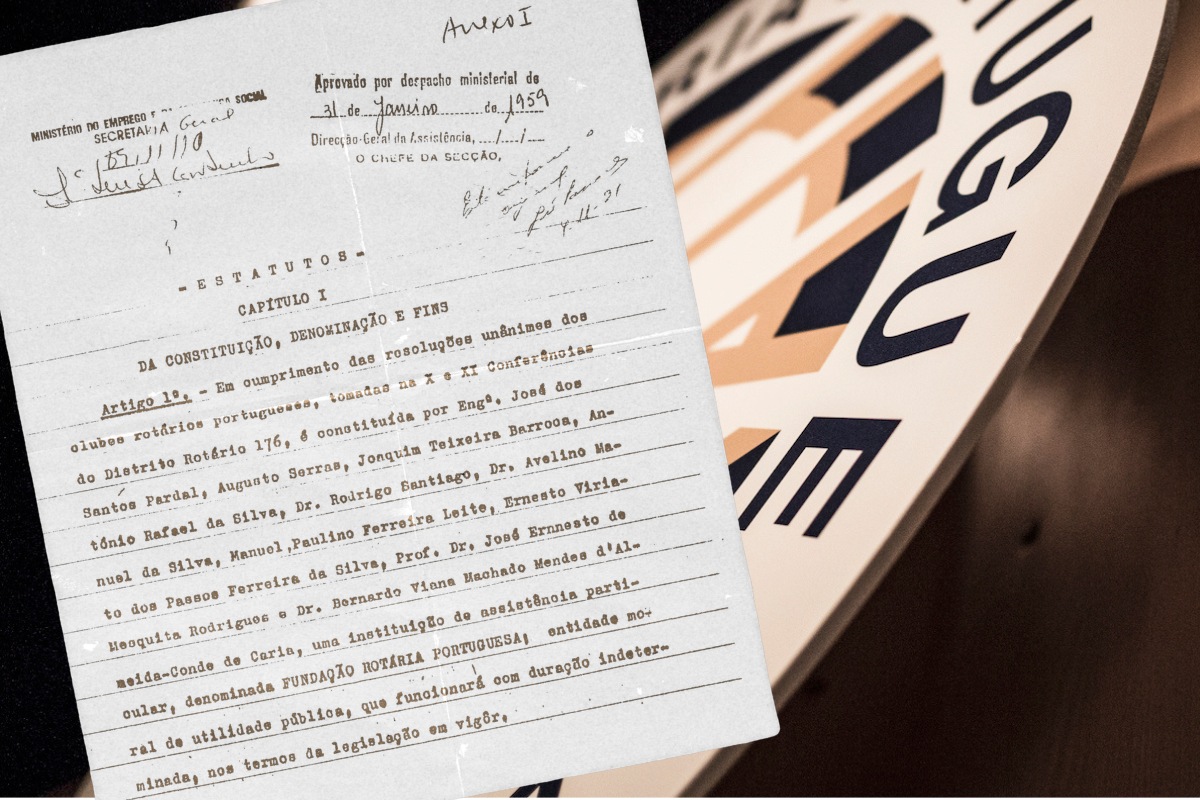 Anexo I
MINISTÉRIO DO EMPREGO E SOCIAL
SECRETARIA Geral
Aprovado por despacho ministerial de
31 de Janeiro de 1959
Direcção-Geral da Assistência, ..../..../....
O CHEFE DA SECÇÃO,
- E S T A T U T O S -
CAPÍTULO I
DA CONSTITUIÇÃO, DENOMINAÇÃO E FINS
Artigo 1º. - Em cumprimento das resoluções unânimes dos
clubes rotários portugueses, tomadas na X e XI Conferências
do Distrito Rotário 176, é constituída por Engº. José dos
Santos Pardal, Augusto Serras, Joaquim Teixeira Barroca, An-
tónio Rafael da Silva, Dr. Rodrigo Santiago, Dr. Avelino Ma-
nuel da Silva, Manuel,Paulino Ferreira Leite, Ernesto Viria-
to dos Passos Ferreira da Silva, Prof. Dr. José Ernnesto de
Mesquita Rodrigues e Dr. Bernardo Viana Machado Mendes d'Al-
meida-Conde de Caria, uma instituição de assistência parti-
cular, denominada FUNDAÇÃO ROTÁRIA PORTUGUESA, entidade mo-
ral de utilidade pública, que funcionará com duração indeter-
minada, nos termos da legislação em vigôr.
TUGUE